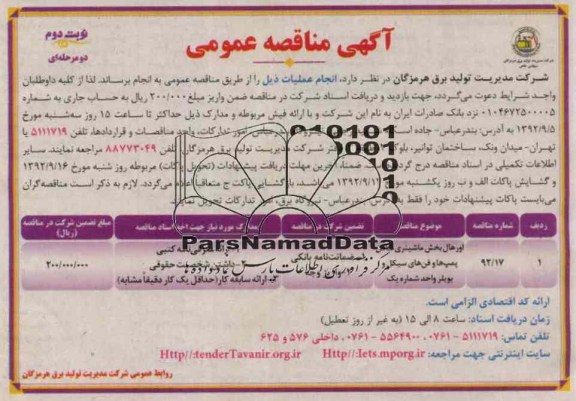 آگهی مناقصه عمومی
نوبت دوم
دو مرحله‌ای
شرکت مدیریت تولید برق هرمزگان در نظر دارد، انجام عملیات ذیل را از طریق مناقصه عمومی به انجام برساند. لذا از کلیه داوطلبان
واجد شرایط دعوت می‌گردد، جهت بازدید و دریافت اسناد شرکت در مناقصه ضمن واریز مبلغ ۲۰۰/۰۰۰ ریال به حساب جاری به شماره
۰۱۰۴۶۷۲۵۰۰۰۵ نزد بانک صادرات ایران به نام این شرکت و با ارائه فیش مربوطه و مدارک ذیل حداکثر تا ساعت ۱۵ روز سه‌شنبه مورخ
۱۳۹۲/۹/۵ به آدرس: بندرعباس- جاده امور تدارکات، واحد مناقصات و قراردادها، تلفن ۵۱۱۱۷۱۹ یا
تهران- میدان ونک، ساختمان توانیر، بلوک شرکت مدیریت تولید برق هرمزگان تلفن ۸۸۷۷۳۰۴۹ مراجعه نمایند. سایر
اطلاعات تکمیلی در اسناد مناقصه درج گردیده ضمناً آخرین مهلت دریافت پیشنهادات (تحویل پاکات) مربوطه روز شنبه مورخ ۱۳۹۲/۹/۱۶
و گشایش پاکات الف و ب روز یکشنبه مورخ ۱۳۹۲/۹/۱۷ می‌باشد. بازگشایی پاکت ج متعاقباً اعلام می‌گردد. لازم به ذکر است مناقصه‌گران
می‌بایست پاکات پیشنهادات خود را فقط به آدرس بندرعباس- نیروگاه برق، امور تدارکات تحویل نمایند.
ردیف شماره مناقصه موضوع مناقصه تضمین شرکت در مناقصه مدارک مورد نیاز جهت اخذ اسناد مناقصه مبلغ تضمین شرکت در مناقصه (ریال)
۱ ۹۲/۱۷ اورهال بخش ماشینری پمپ‌ها و فن‌های سیکل بویلر واحد شماره یک ضمانت‌نامه بانکی کتبی ۲- داشتن شخصیت حقوقی ۳- ارائه سابقه کار (حداقل یک کار دقیقاً مشابه) ۲۰۰/۰۰۰/۰۰۰
ParsNamadData
مرکز فرآوری اطلاعات پارس نماد داده‌ها
ارائه کد اقتصادی الزامی است.
زمان دریافت اسناد: ساعت ۸ الی ۱۵ (به غیر از روز تعطیل)
تلفن تماس: ۵۱۱۱۷۱۹ - ۰۷۶۱ ، ۵۵۶۴۹۰۰ - ۰۷۶۱، داخلی ۵۷۶ و ۶۲۵
سایت اینترنتی جهت مراجعه: Http//:Iets.mporg.ir Http//:tenderTavanir.org.ir
روابط عمومی شرکت مدیریت تولید برق هرمزگان